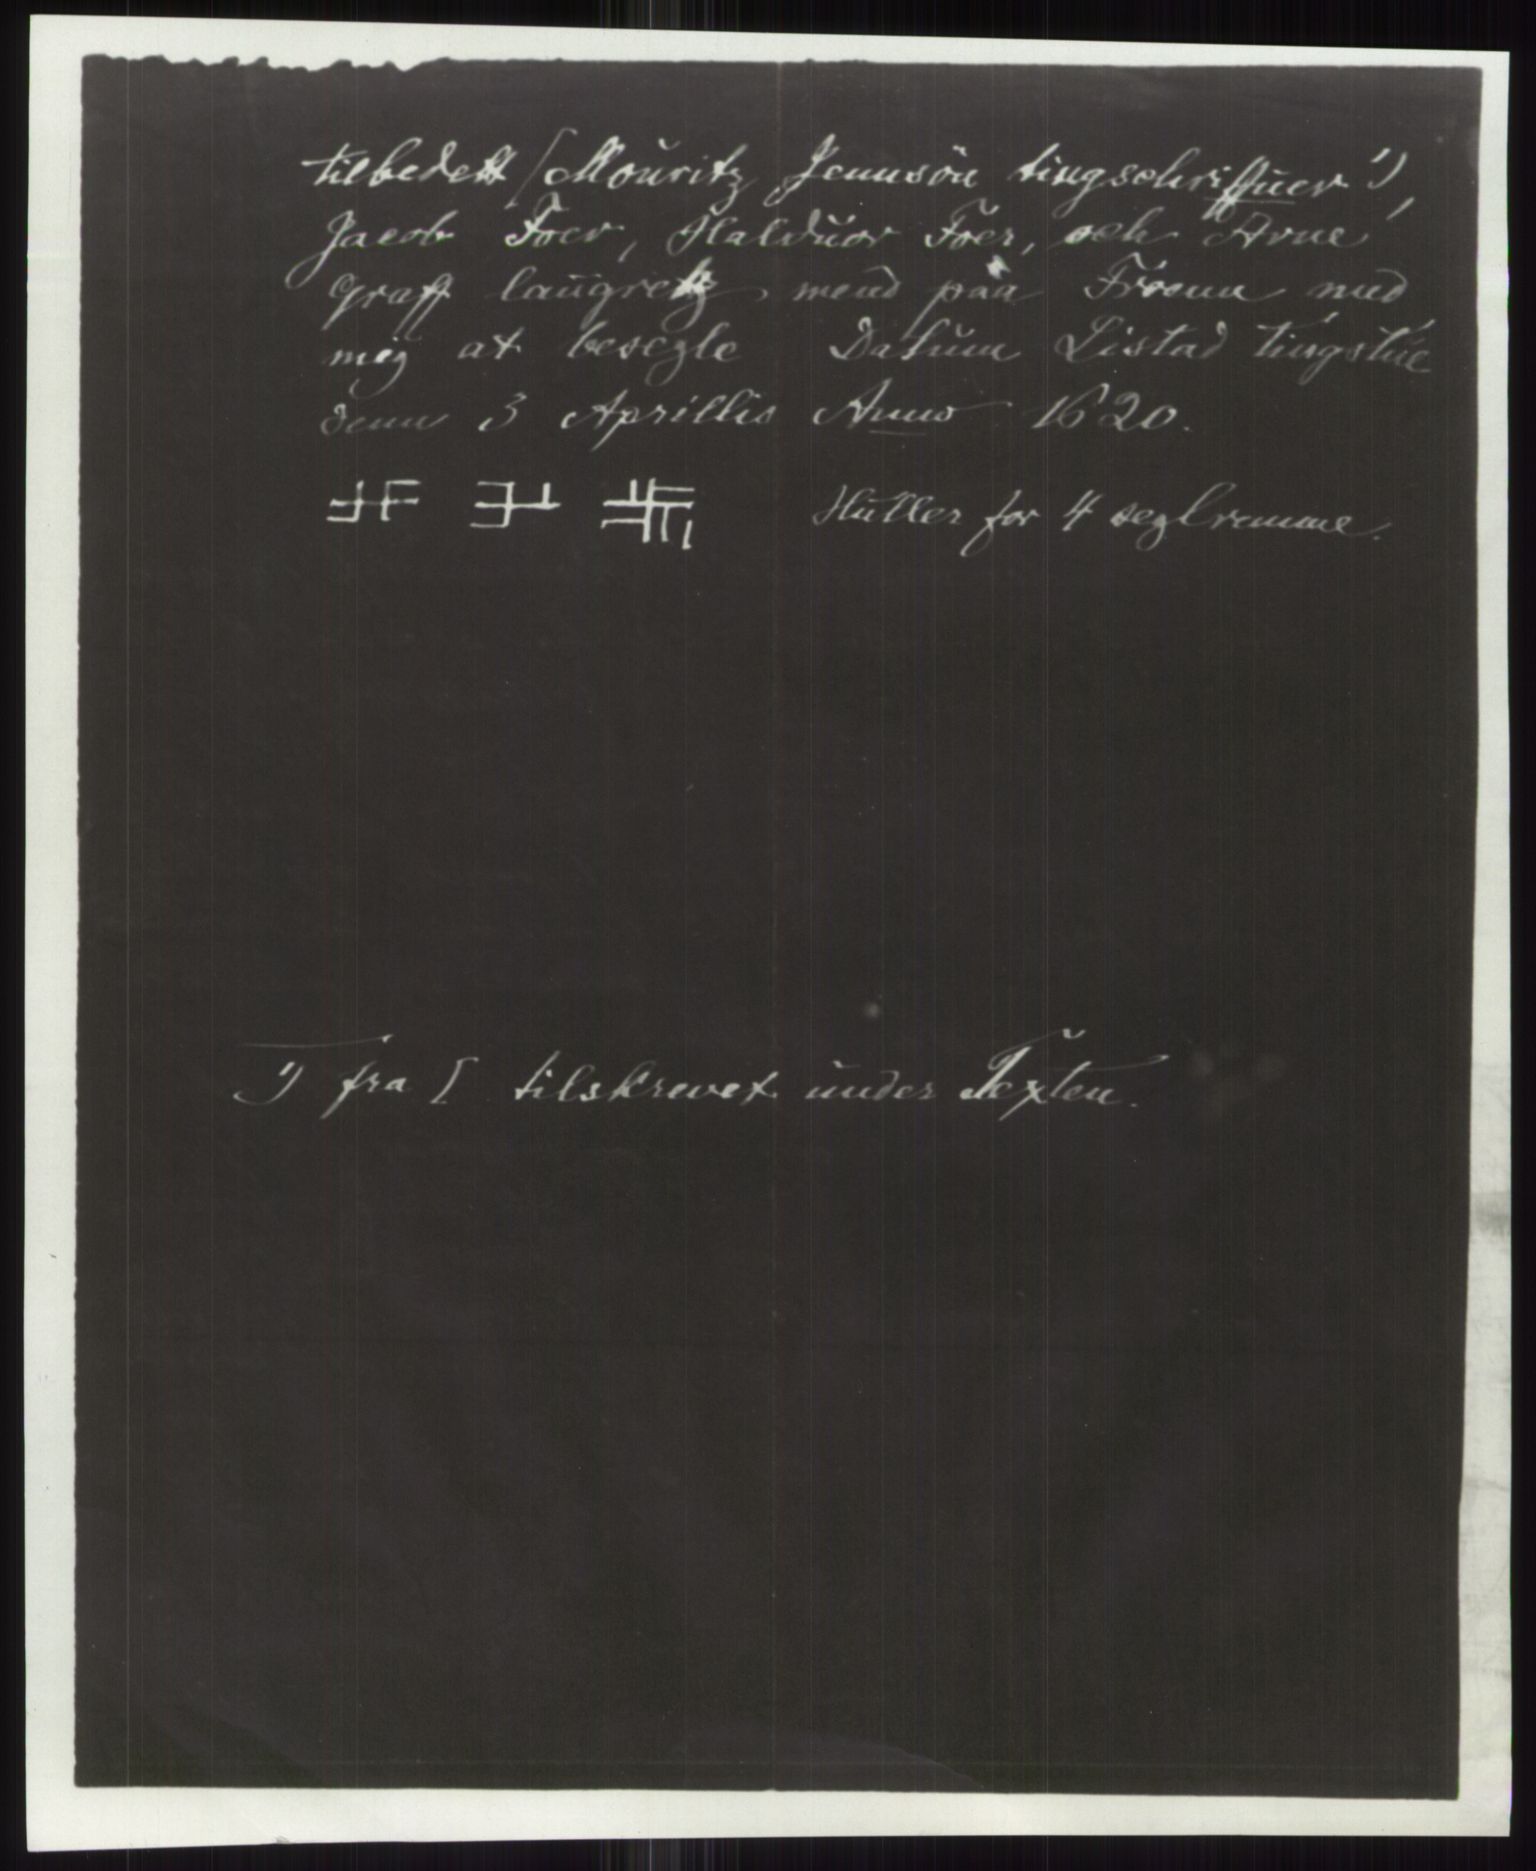 tilbedett [Mouritz Jennsön tingschriffuer 1),
Jacob Foer, Halduor Foer, och Arne
Graff laugretz mend paa Froenn med
mig at besegle Datum Listad tingstue
denn 3 Aprillis Anno 1620.
Huller for 4 seglremme.
1) fra [ tilskrevet under Texten.